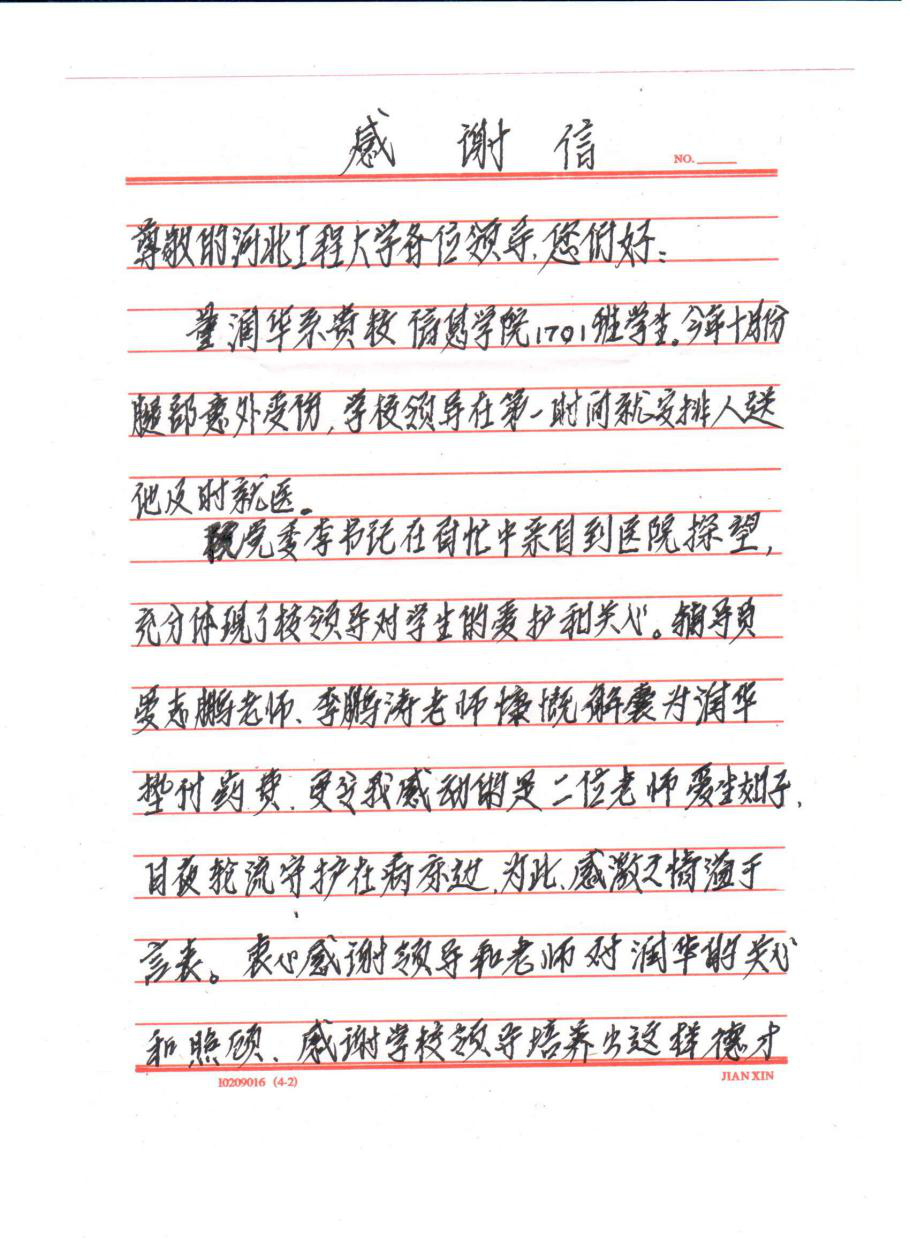 感谢信
NO.
尊敬的河北工程大学各位领导,您们好:
董润华系贵校信息学院1701班学生。今年十月份
腿部意外受伤,学校领导在第一时间就安排人送
他及时就医。
党委李书记在百忙中亲自到医院探望,
充分体现了校领导对学生的爱护和关心。辅导员
志鹏老师、李鹏涛老师慷慨解囊为润华
垫付药费,更令我感动的是二位老师爱生如子,
日夜轮流守护在病床边,为此,感激之情溢于
言表。衷心感谢领导和老师对润华的关心
和照顾、感谢学校领导培养出这样德才
10209016 (4-2)
JIAN XIN